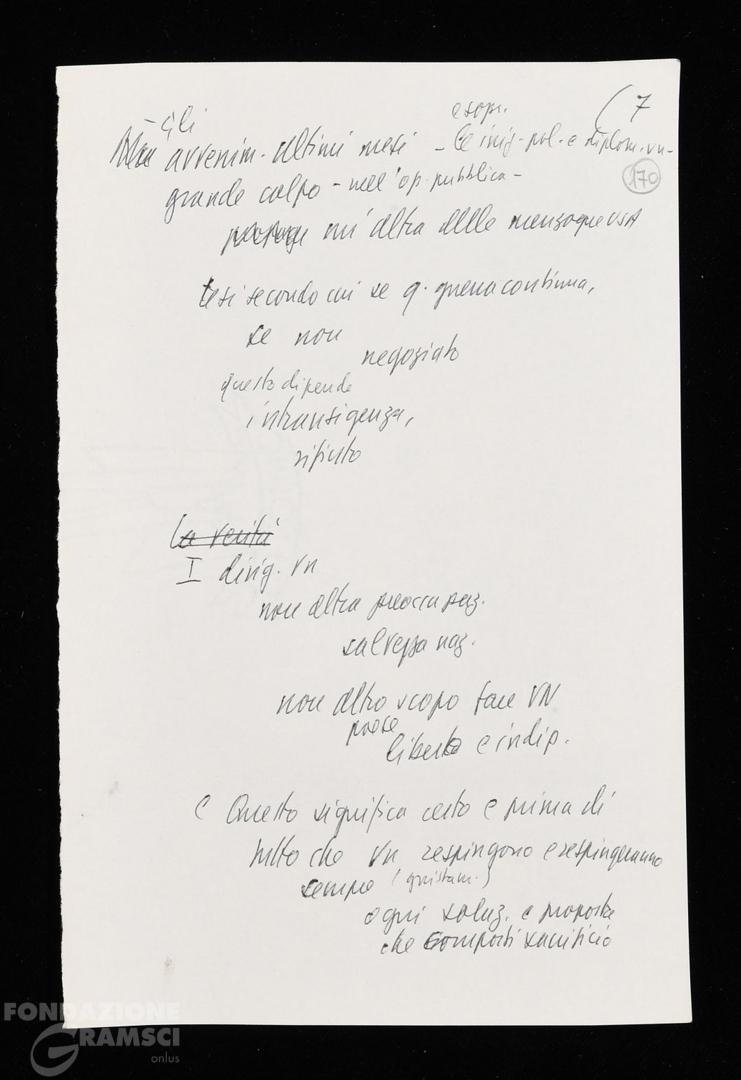 (7
170
- Gli esop.
avvenim. ultimi mesi - le iniz. pol. e diplom. vn -
grande colpo - nell'op. pubblica -
un'altra delle menzogne USA
tesi secondo cui se q. guerra continua,
se non
negoziato
questo dipende
intransigenza,
rifiuto
La verità
I dirig. VN
non altra preoccupaz.
salvezza naz.
non altro scopo fare VN
paese
libero e indip.
E Questo significa certo e prima di
tutto che VN respingono e respingeranno
sempre (giustam.)
ogni soluz. e proposta
che comporti sacrificio
FONDAZIONE
GRAMSCI
onlus